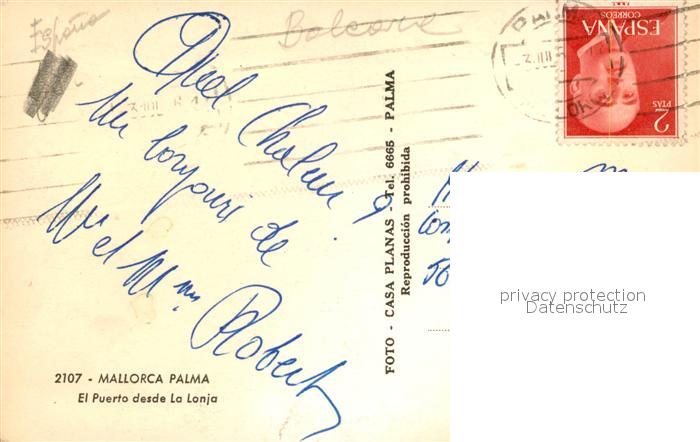 España
Baleare
Quel Chaleur !
Un bonjour de
Mr et Mme Robert
2107 - MALLORCA PALMA
El Puerto desde La Lonja
FOTO - CASA PLANAS - Tel. 6665 - PALMA
Reproducción prohibida
ESPAÑA
CORREOS
2
PTAS
privacy protection
Datenschutz